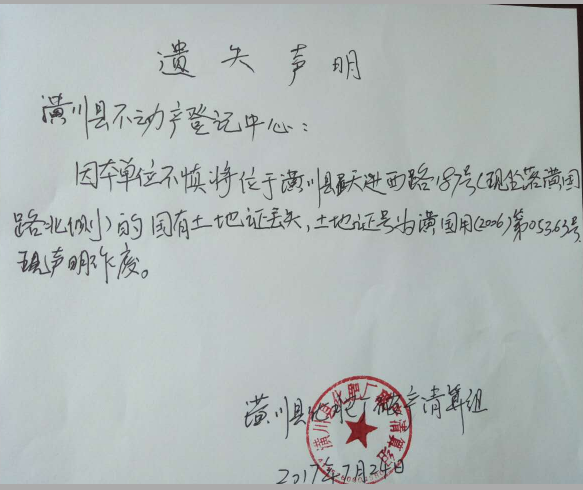 遗失声明
潢川县不动产登记中心：
因本单位不慎将位于潢川县跃进西路187号(现金落潢国
路北侧)的国有土地证丢失,土地证号为潢国用(2006)第05363号,
现声明作废。
潢川县化肥厂破产清算组
2017年7月24日